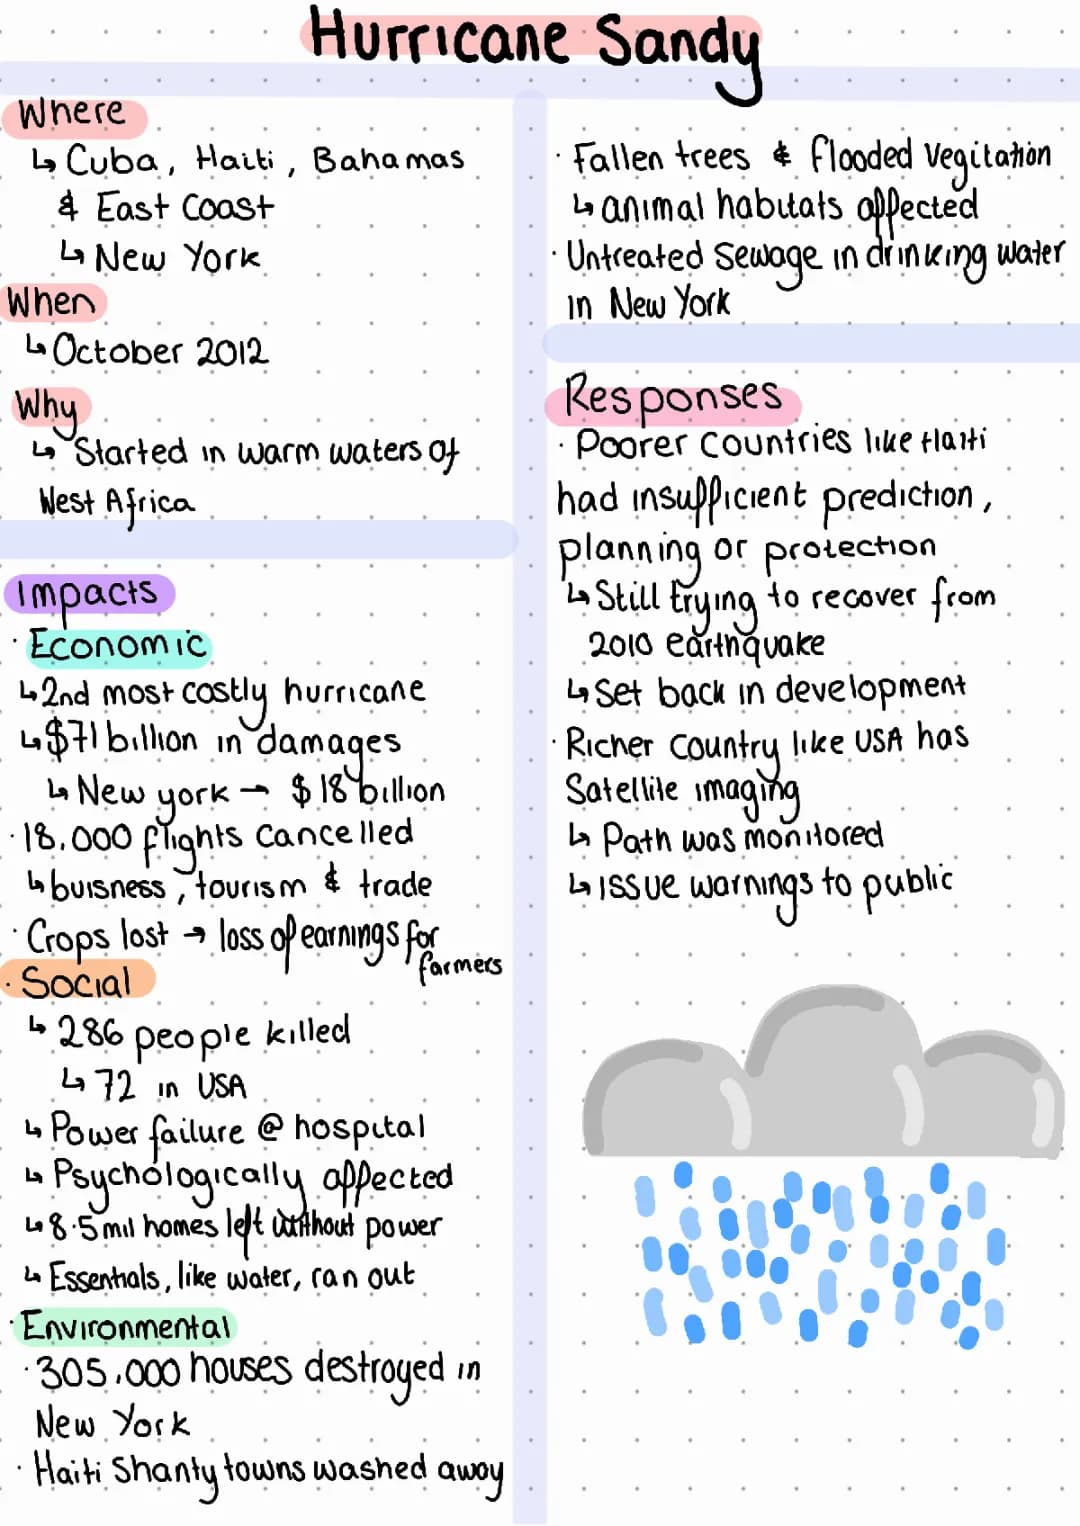 Hurricane Sandy
Where
↳ Cuba, Haiti, Bahamas
& East Coast
↳ New York
When
↳ October 2012
Why
↳ Started in warm waters of
West Africa
Impacts
· Economic
↳ 2nd most costly hurricane
↳ $71 billion in damages
↳ New york → $18 billion
· 18,000 flights cancelled
↳ buisness, tourism & trade
· Crops lost → loss of earnings for
farmers
· Social
↳ 286 people killed
↳ 72 in USA
↳ Power failure @ hospital
↳ Psychologically affected
↳ 8.5 mil homes left without power
↳ Essentials, like water, ran out
· Environmental
· 305,000 houses destroyed in
New York
· Haiti Shanty towns washed away
· Fallen trees & flooded Vegitation
↳ animal habitats affected
· Untreated Sewage in drinking water
in New York
Responses
· Poorer Countries like Haiti
had insufficient prediction,
planning or protection
↳ Still trying to recover from
2010 earthquake
↳ Set back in development
· Richer Country like USA has
Satellite imaging
↳ Path was monitored
↳ issue warnings to public